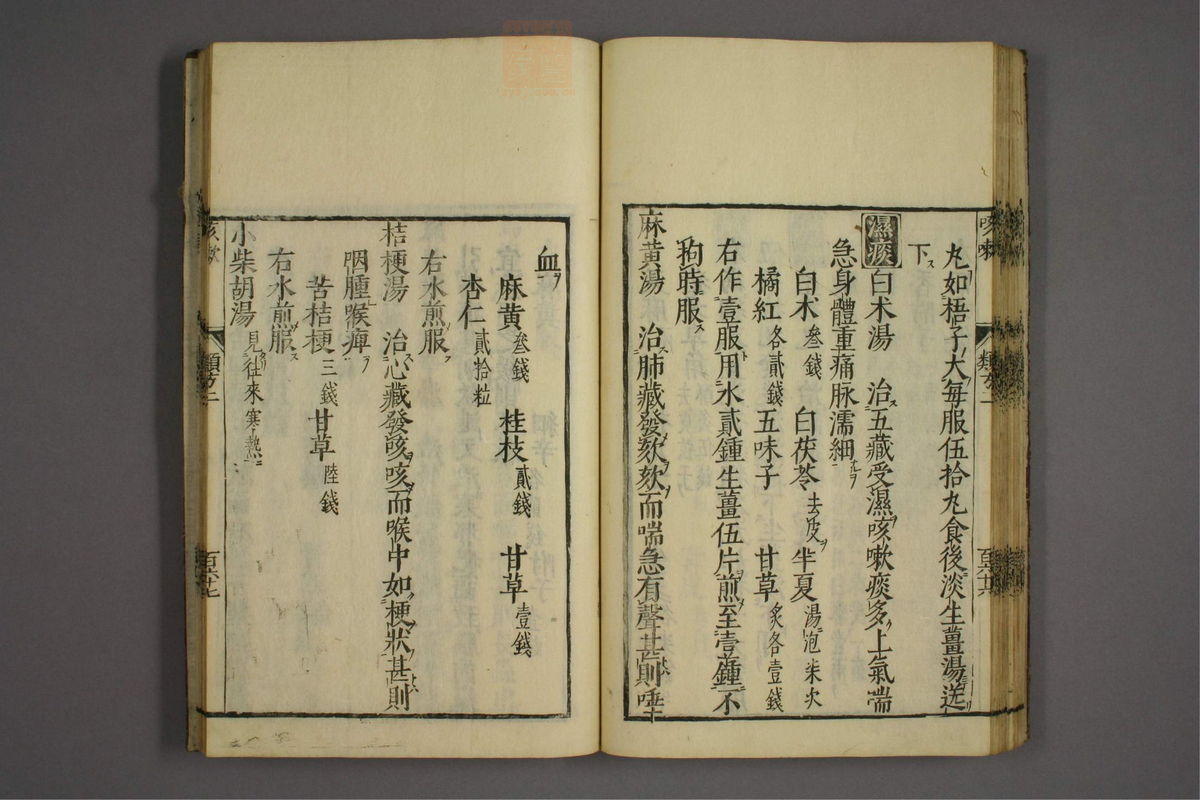 咳嗽
類方二
丸如梧子大每服伍拾丸食後淡生薑湯送
下ス
濕痰 白朮湯 治五藏受濕咳嗽痰多上氣喘
急身體重痛脉濡細
白朮 叄錢 白茯苓 去皮 半夏 湯泡柒次
橘紅 各貳錢 五味子 甘草 炙各壹錢
右作壹服用水貳鍾生薑伍片煎至壹鍾不
拘時服ス
麻黄湯 治肺藏發欬欬而喘急有聲甚則唾
血ヲ
麻黄 叄錢 桂枝 貳錢 甘草 壹錢
杏仁 貳拾粒
右水煎服
桔梗湯 治心藏發咳咳而喉中如梗狀甚則
咽腫喉痺ヲ
苦桔梗 三錢 甘草 陸錢
右水煎服ス
小柴胡湯 見往來寒熱ニ
咳嗽
類方二
百六十七